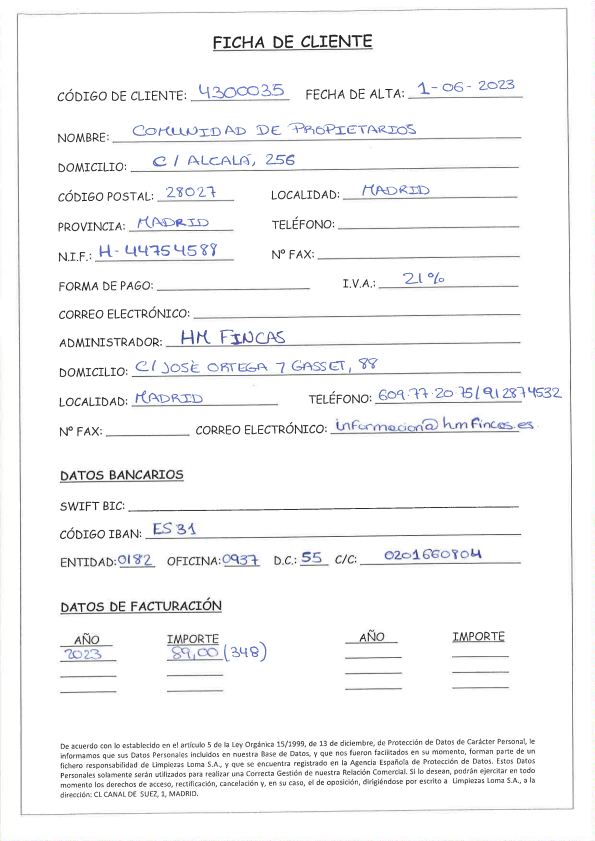 FICHA DE CLIENTE
CÓDIGO DE CLIENTE: 4300035 FECHA DE ALTA: 1-06-2023
NOMBRE: COMUNIDAD DE PROPIETARIOS
DOMICILIO: C/ ALCALÁ, 256
CÓDIGO POSTAL: 28027 LOCALIDAD: MADRID
PROVINCIA: MADRID TELÉFONO:
N.I.F.: H-44754588 Nº FAX:
FORMA DE PAGO: I.V.A.: 21%
CORREO ELECTRÓNICO:
ADMINISTRADOR: HM FINCAS
DOMICILIO: C/ JOSÉ ORTEGA Y GASSET, 88
LOCALIDAD: MADRID TELÉFONO: 609.77.20.75/912874532
Nº FAX: CORREO ELECTRÓNICO: informacion@hmfincas.es
DATOS BANCARIOS
SWIFT BIC:
CÓDIGO IBAN: ES31
ENTIDAD: 0182 OFICINA: 0937 D.C.: 55 C/C: 0201660804
DATOS DE FACTURACIÓN
AÑO IMPORTE AÑO IMPORTE
2023 89,00 (348)
De acuerdo con lo establecido en el artículo 5 de la Ley Orgánica 15/1999, de 13 de diciembre, de Protección de Datos de Carácter Personal, le
informamos que sus Datos Personales incluidos en nuestra Base de Datos, y que nos fueron facilitados en su momento, forman parte de un
fichero responsabilidad de Limpiezas Loma S.A., y que se encuentra registrado en la Agencia Española de Protección de Datos. Estos Datos
Personales solamente serán utilizados para realizar una Correcta Gestión de nuestra Relación Comercial. Si lo desean, podrán ejercitar en todo
momento los derechos de acceso, rectificación, cancelación y, en su caso, el de oposición, dirigiéndose por escrito a Limpiezas Loma S.A., a la
dirección: CL CANAL DE SUEZ, 1, MADRID.